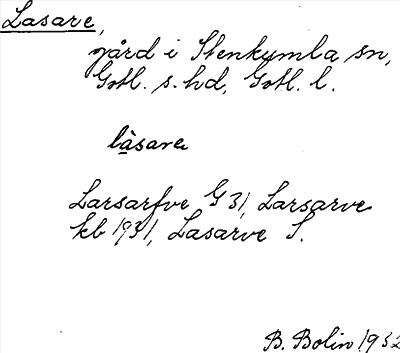 Lasare,
gård i Stenkumla sn,
Gotl. s. hd, Gotl. l.
làsare
Larsarfve G 31, Larsarve
kb 1931, Lasarve S.
B. Bolin 1932